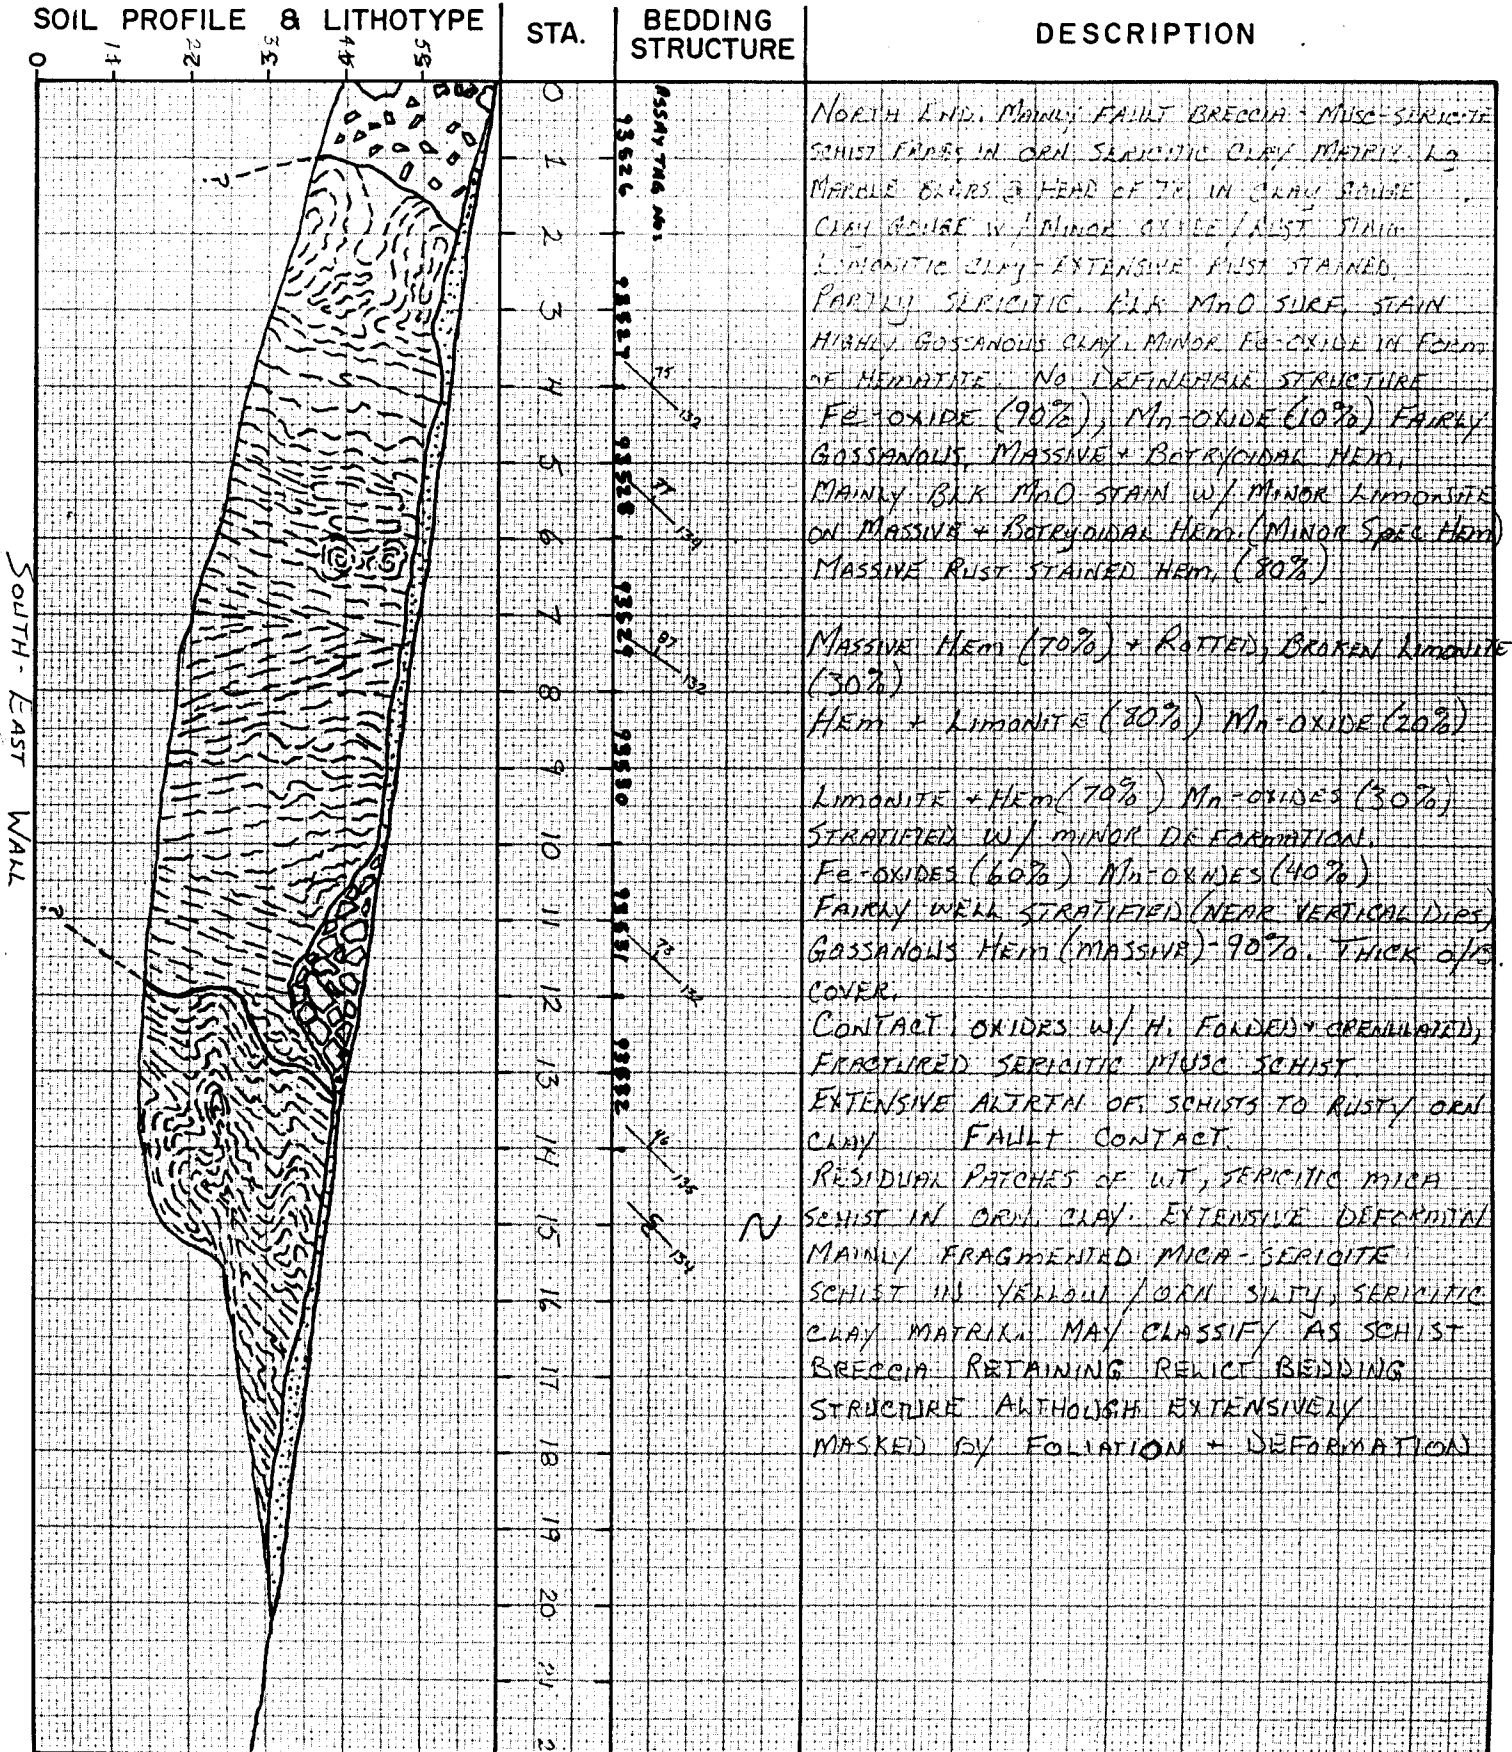 SOIL PROFILE & LITHOTYPE
STA.
BEDDING STRUCTURE
DESCRIPTION
0 11 22 33 44 55
ASSAY TAG NOS
0
1
2
3
4
5
6
7
8
9
10
11
12
13
14
15
16
17
18
19
20
21
2
75
132
77
139
87
132
73
132
46
135
134
?
?
SOUTH-EAST WALL
NORTH END. MAINLY FAULT BRECCIA - MUSC-SERICITE
SCHIST FRAGS IN ORN SERICITIC CLAY MATRIX. LG
MARBLE BLDRS @ HEAD OF TR. IN CLAY GOUGE
CLAY GOUGE W/ MINOR OXIDE / RUST STAIN
LIMONITIC CLAY - EXTENSIVE RUST STAINED
PARTLY SERICITIC. BLK MnO SURF. STAIN
HIGHLY GOSSANOUS CLAY. MINOR Fe-OXIDE IN FORM
OF HEMATITE. NO DEFINEABLE STRUCTURE
Fe-OXIDE (90%), Mn-OXIDE (10%) FAIRLY
GOSSANOUS, MASSIVE + BOTRYOIDAL HEM,
MAINLY BLK MnO STAIN W/ MINOR LIMONITE
ON MASSIVE + BOTRYOIDAL HEM. (MINOR SPEC HEM)
MASSIVE RUST STAINED HEM, (80%)
MASSIVE HEM (70%) + ROTTED, BROKEN LIMONITE
(30%)
HEM + LIMONITE (80%) Mn-OXIDE (20%)
LIMONITE + HEM (70%) Mn-OXIDES (30%)
STRATIFIED W/ MINOR DEFORMATION.
Fe-OXIDES (60%) Mn-OXIDES (40%)
FAIRLY WELL STRATIFIED (NEAR VERTICAL DIPS)
GOSSANOUS HEM (MASSIVE)-90%. THICK O/B.
COVER.
CONTACT: OXIDES W/ H. FOLDED + CRENULATED,
FRACTURED SERICITIC MUSC SCHIST.
EXTENSIVE ALTRTN OF SCHISTS TO RUSTY ORN
CLAY FAULT CONTACT.
RESIDUAL PATCHES OF WT, SERICITIC MICA
SCHIST IN ORN. CLAY. EXTENSIVE DEFORMTN
MAINLY FRAGMENTED MICA-SERICITE
SCHIST IN YELLOW / ORN SILTY, SERICITIC
CLAY MATRIX. MAY CLASSIFY AS SCHIST
BRECCIA RETAINING RELICT BEDDING
STRUCTURE ALTHOUGH EXTENSIVELY
MASKED BY FOLIATION + DEFORMATION